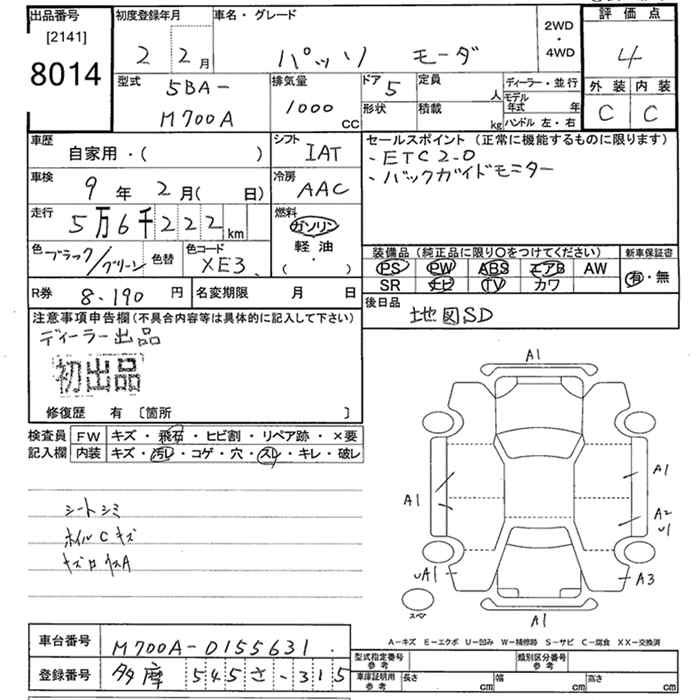 出品番号 初度登録年月 車名・グレード 2WD・4WD 評価点
[2141]
8014 2 2月 パッソ モーダ 4
型式 排気量 ドア 定員 ディーラー・並行 外装 内装
5BA- 5 人 モデル年式 年
M700A 1000 CC 形状 積載 kg ハンドル 左・右 C C
車歴 シフト セールスポイント (正常に機能するものに限ります)
自家用・( ) IAT ・ETC2.0
車検 9年 2月( 日) 冷房 AAC ・バックガイドモニター
走行 5万6千222km 燃料 ガソリン
軽油
・( )
色 ブラック/グリーン 色替 色コード XE3 装備品 (純正品に限り〇をつけてください) 新車保証書
PS PW ABS エアB AW 有・無
SR ナビ TV カワ
R券 8,190円 名変期限 月 日 後日品 地図SD
注意事項申告欄(不具合内容等は具体的に記入して下さい)
ディーラー出品
初出品
修復歴 有 [箇所 ]
検査員 FW キズ・飛石・ヒビ割・リペア跡・×要
記入欄 内装 キズ・汚レ・コゲ・穴・スレ・キレ・破レ
シートシミ
ホイルCキズ
A1
A1
A1
A2
U1
UA1
A3
A1
スペア
A-キズ E-エクボ U-凹み W-補修跡 S-サビ C-腐食 XX-交換済
車台番号 M700A-0155631
登録番号 多摩 545 さ-315
型式指定番号 参考 類別区分番号 参考
車庫証明用 参考 長さ cm 幅 cm 高さ cm